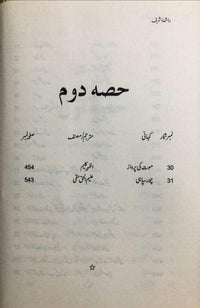 راشد اشرف
حصہ دوم
نمبر شمار کہانی مترجم/مصنف صفحہ نمبر
30 موت کی پرواز اظہر کلیم 454
31 چور سپاہی علیم الحق حقی 543